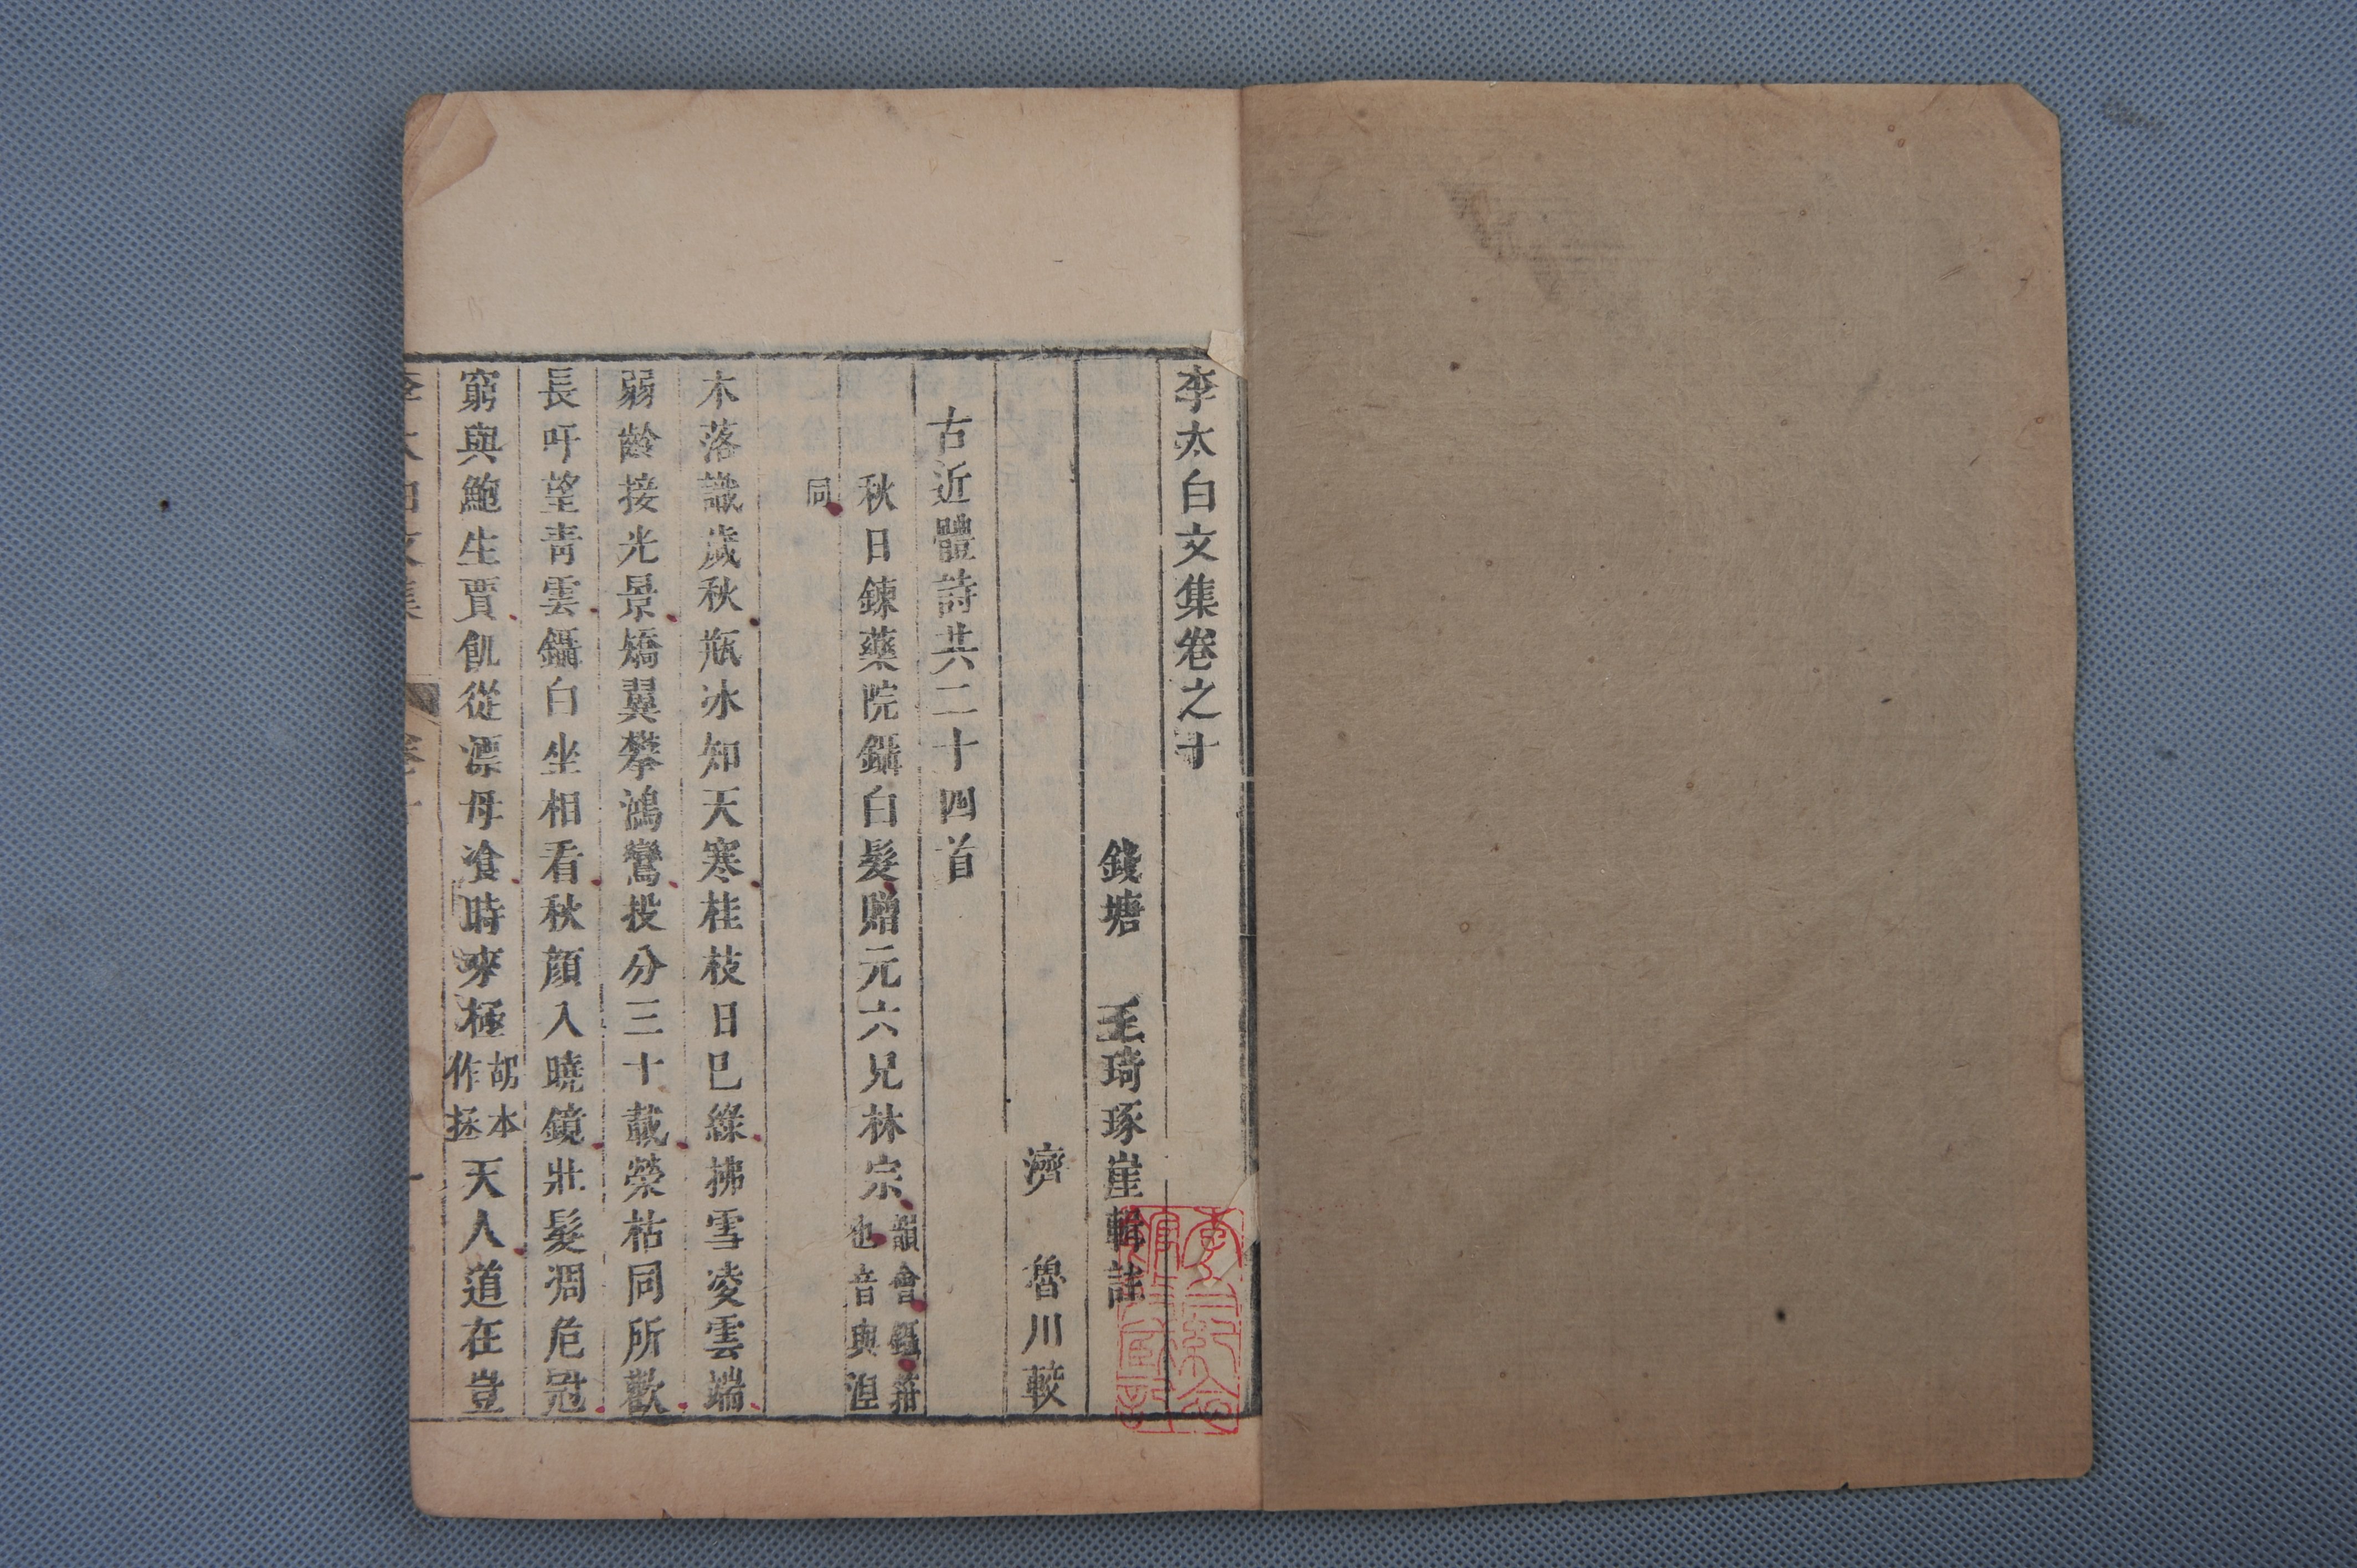 李太白文集卷之十
錢塘 王琦琢崖輯註
濟 魯川較
古近體詩共二十四首
秋日鍊藥院鑷白髮贈元六兄林宗韻會鑷箝也音與湼
同
木落識歲秋瓶冰知天寒桂枝日已綠拂雪凌雲端
弱齡接光景矯翼攀鴻鸞投分三十載榮枯同所歡
長吁望青雲鑷白坐相看秋顏入曉鏡壯髮凋危冠
窮與鮑生賈飢從漂母飡時來極胡本作拯天人道在豈